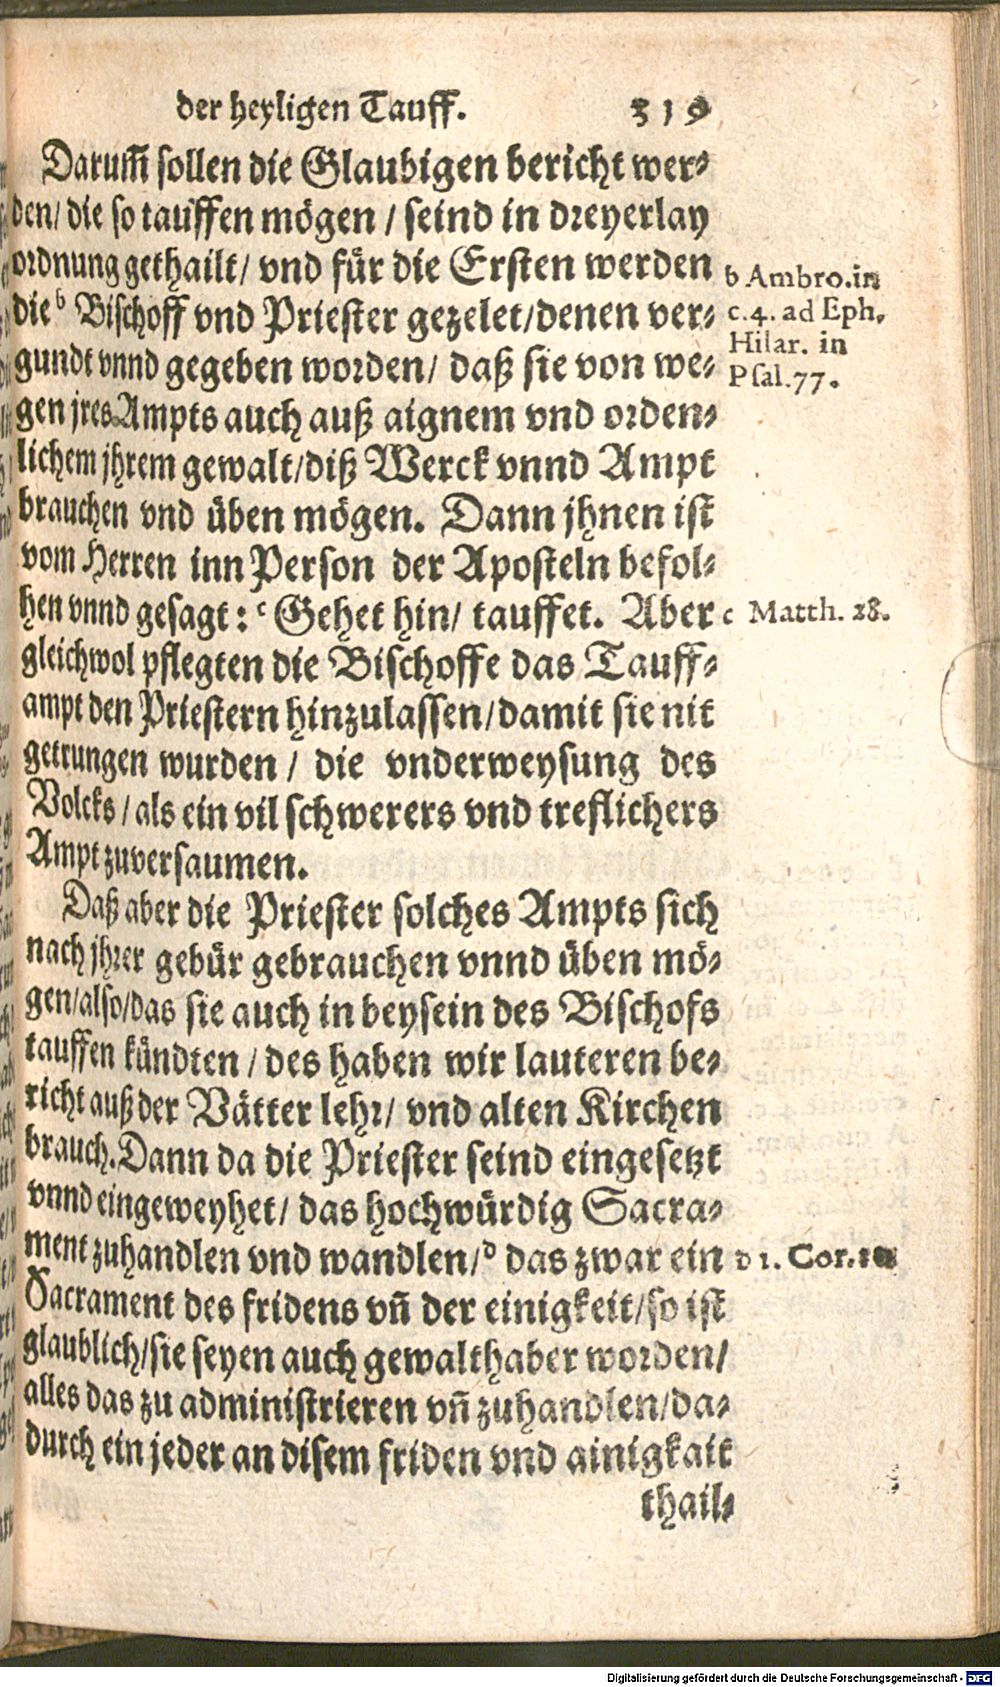 der heyligen Tauff. 319
Darum̃ sollen die Glaubigen bericht wer⸗
den/ die so tauffen mögen / seind in dreyerlay
ordnung gethailt/ vnd für die Ersten werden
die ᵇ Bischoff vnd Priester gezelet/denen ver⸗
gundt vnnd gegeben worden/ daß sie von we⸗
gen jres Ampts auch auß aignem vnd orden⸗
lichem jhrem gewalt/diß Werck vnnd Ampt
brauchen vnd üben mögen. Dann jhnen ist
vom Herren inn Person der Aposteln befol⸗
hen vnnd gesagt: ᶜ Gehet hin/ tauffet. Aber
gleichwol pflegten die Bischoffe das Tauff⸗
ampt den Priestern hinzulassen/damit sie nit
getrungen wurden / die vnderweysung des
Volcks / als ein vil schwerers vnd treflichers
Ampt zuversaumen.
Daß aber die Priester solches Ampts sich
nach jhrer gebür gebrauchen vnnd üben mö⸗
gen/also/das sie auch in beysein des Bischofs
tauffen kündten / des haben wir lauteren be⸗
richt auß der Vätter lehr/ vnd alten Kirchen
brauch. Dann da die Priester seind eingesetzt
vnnd eingeweyhet/ das hochwürdig Sacra⸗
ment zuhandlen vnd wandlen/ ᵈ das zwar ein
Sacrament des fridens vñ der einigkeit/so ist
glaublich/sie seyen auch gewalthaber worden/
alles das zu administrieren vñ zuhandlen/da⸗
durch ein jeder an disem friden vnd ainigkait
thail⸗
b Ambro. in
c. 4. ad Eph.
Hilar. in
Psal. 77.
c Matth. 28.
d 1. Cor.
Digitalisierung gefördert durch die Deutsche Forschungsgemeinschaft - DFG